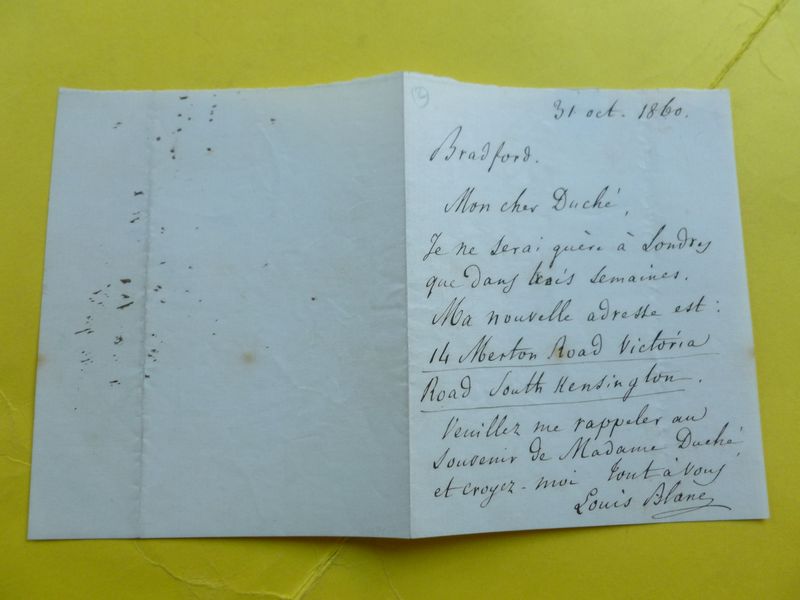 (2)
31 oct. 1860.
Bradford.
Mon cher Duché,
Je ne serai guère à Londres
que dans trois semaines.
Ma nouvelle adresse est :
14 Merton Road Victoria
Road South Kensington.
Veuillez me rappeler au
souvenir de Madame Duché
et croyez-moi tout à vous
Louis Blanc